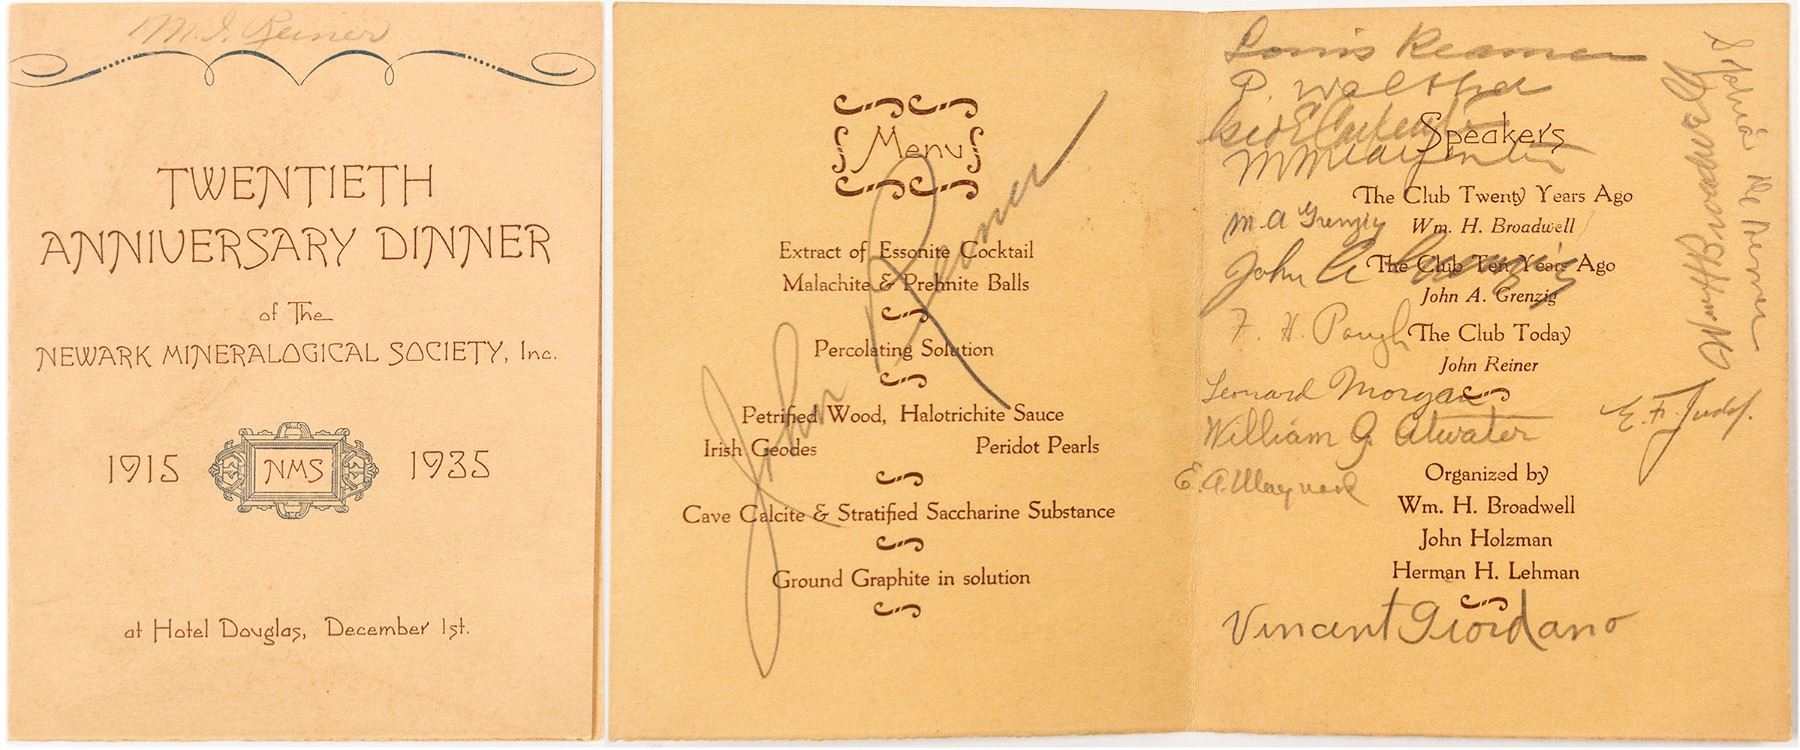 M. J. Reiner
TWENTIETH
ANNIVERSARY DINNER
of The
NEWARK MINERALOGICAL SOCIETY, Inc.
1915 NMS 1935
at Hotel Douglas, December 1st.
Menu
Extract of Essonite Cocktail
Malachite & Prehnite Balls
Percolating Solution
Petrified Wood, Halotrichite Sauce
Irish Geodes Peridot Pearls
Cave Calcite & Stratified Saccharine Substance
Ground Graphite in solution
John Reiner
Louis Reamer
P. Walther
Geo E Carpenter
M M Carpenter
Speakers
The Club Twenty Years Ago
M. A Grenzig
Wm. H. Broadwell
John A Grenzig
The Club Ten Years Ago
John A. Grenzig
F. H. Pough
The Club Today
John Reiner
Leonard Morgan
William G. Atwater
E. A. Maynard
Organized by
Wm. H. Broadwell
John Holzman
Herman H. Lehman
Vincent Giordano
Wm H Broadwell
E. F.